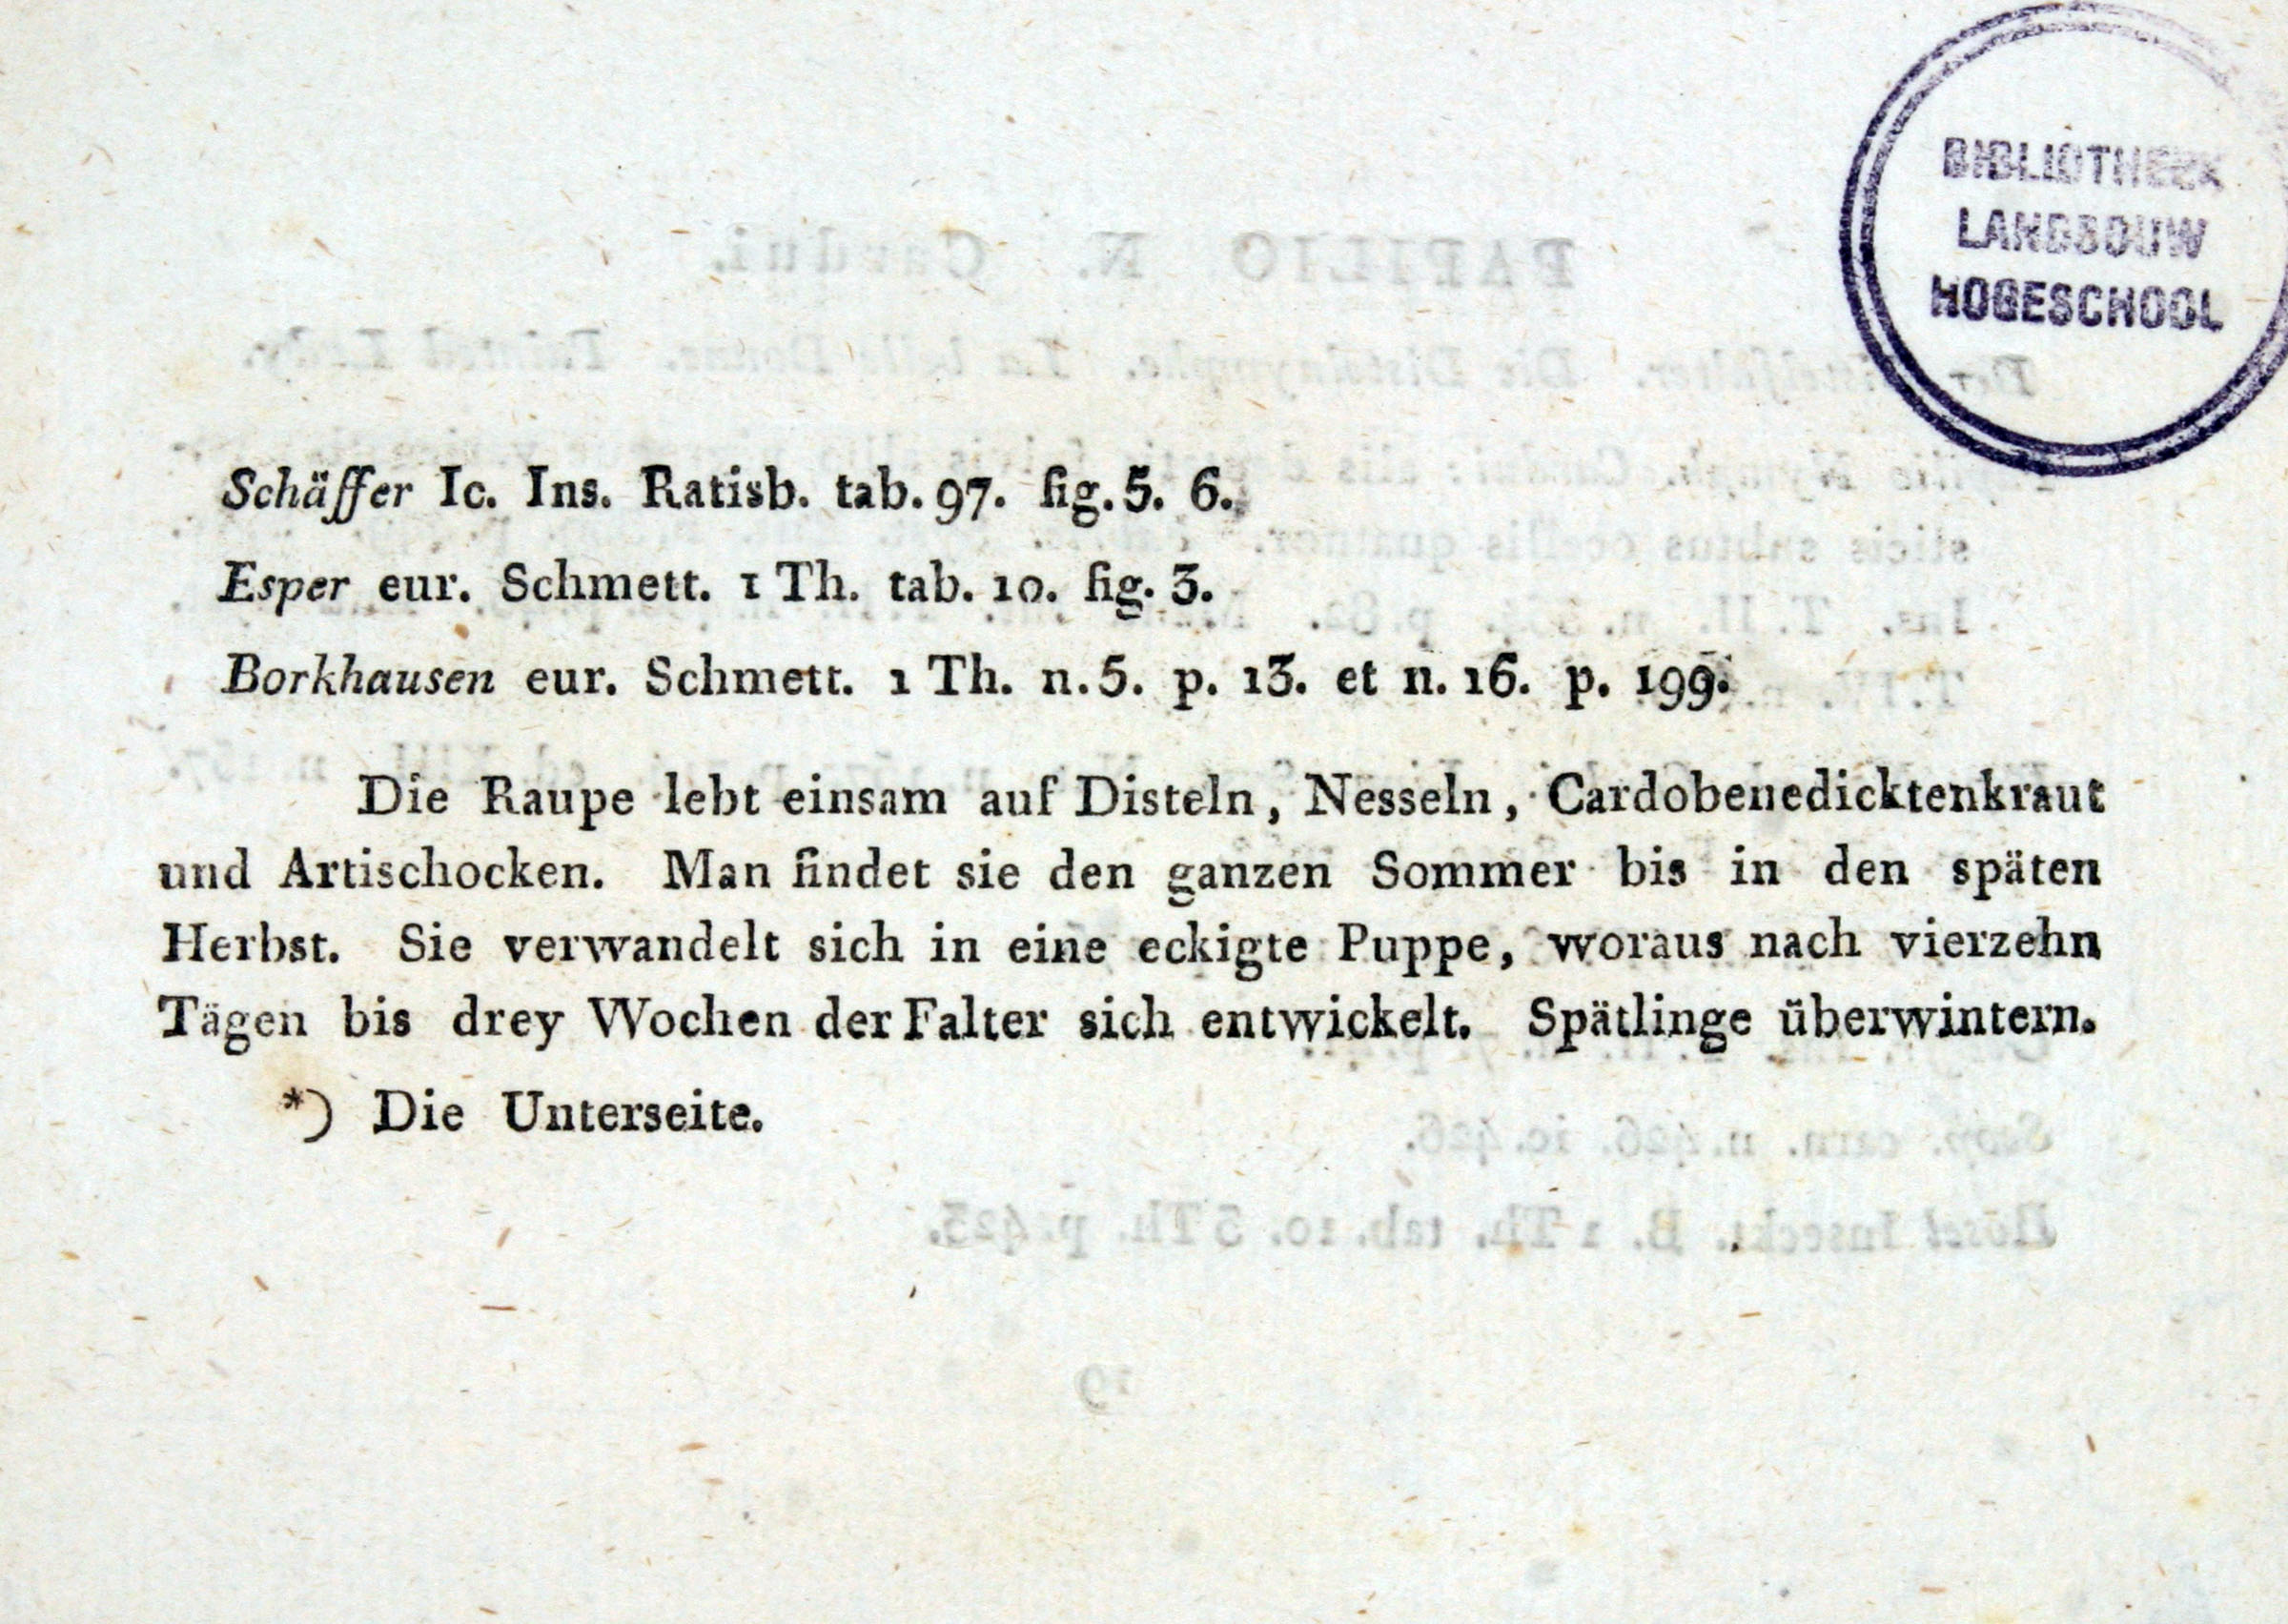 BIBLIOTHEEK
LANDBOUW
HOGESCHOOL
Schäffer Ic. Ins. Ratisb. tab. 97. fig. 5. 6.
Esper eur. Schmett. 1 Th. tab. 10. fig. 3.
Borkhausen eur. Schmett. 1 Th. n. 5. p. 13. et n. 16. p. 199.
Die Raupe lebt einsam auf Disteln, Nesseln, Cardobenedicktenkraut
und Artischocken. Man findet sie den ganzen Sommer bis in den späten
Herbst. Sie verwandelt sich in eine eckigte Puppe, woraus nach vierzehn
Tägen bis drey Wochen der Falter sich entwickelt. Spätlinge überwintern.
*) Die Unterseite.